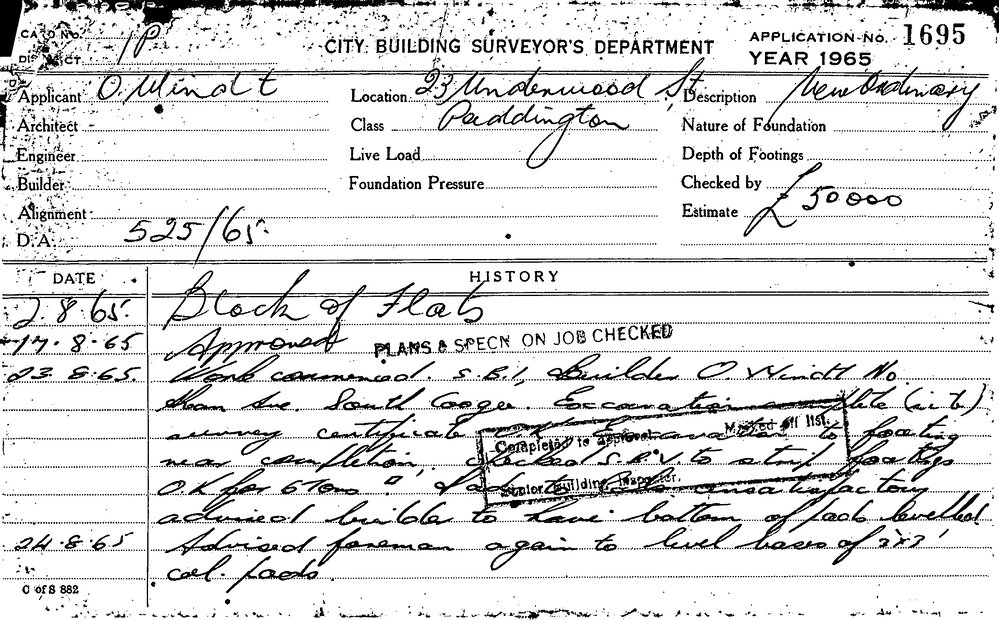 CARD No. 1P
CITY BUILDING SURVEYOR'S DEPARTMENT
APPLICATION No. 1695
DISTRICT
YEAR 1965
Applicant O. Windt Location 23 Underwood St, Description New Ordinary
Architect Class Paddington Nature of Foundation
Engineer Live Load Depth of Footings
Builder Foundation Pressure Checked by
Alignment Estimate £ 50000
D.A. 525/65.
DATE HISTORY
2.8.65. Block of Flats
17.8.65 Approved PLANS & SPECN ON JOB CHECKED
23.8.65. Work commenced S.B.1, Builder O. Windt No
Ave. South Coogee. Excavation complete (site)
survey certificate excavation to footing
near completion, checked S.B.V. to strip footings
O.K for 6 Tons unsatisfactory
advised builder to have bottom of pads levelled
Completed to approval. Marked off list.
Senior Building Inspector.
24.8.65 Advised foreman again to level bases of 3'x3'
col. pads.
C of S 882